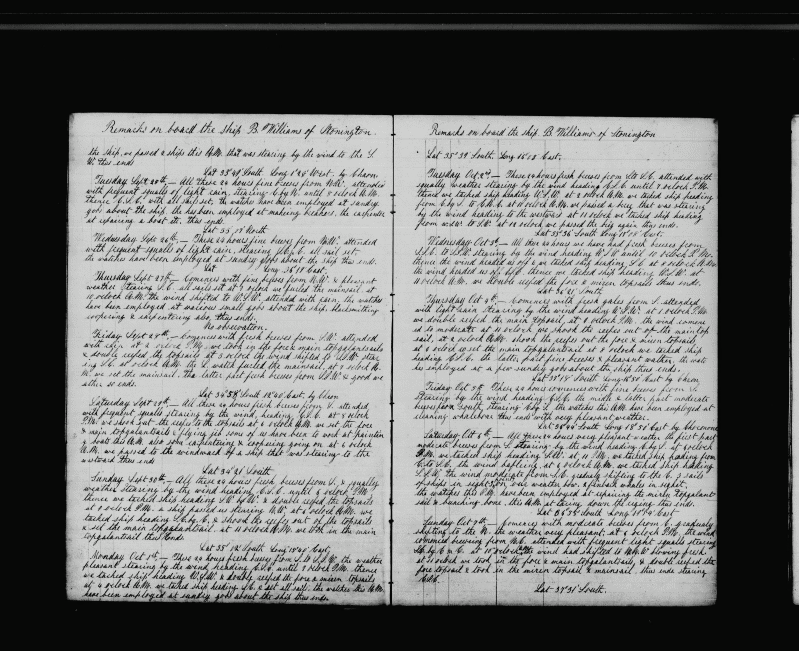 Remarks on board the ship B Williams of Stonington.
the ship, we passed 2 ships this A.M. that was stearing by the wind to the S.
W. thus ends
Lat 33° 49 South Long 1° 48 West. by Chron
Tuesday Sept 25th — All these 24 hours fine breses from NW. attended
with frequent squalls of light rain, stearing E by N. until 8 oclock A.M.
thence E.S.E. with all ship set, the watches have been employed at sundry
gobs about the ship, she has been employed at making breakers, the carpenter
at repairing a boat etc. thus ends.
Lat 35° 17 North
Wednesday Sept 26th — These 24 hours fine breses from NW. attended
with frequent squalls of light rain, stearing E.S.E. all sail set,
the watches have been employed at sundry gobs about the ship thus ends.
Lat Long 36° 18 East.
Thursday Sept 27th — Comences with fine breses from N.W. & pleasant
weather stearing S.E. all sails set at 7 oclock we furled the mainsail at
10 oclock A.M. the wind shifted to W.S.W. attended with rain, the watches
have been employed at various small gobs about the ship. blacksmitting
coopering & carpentering also, thus ends.
No observation.
Friday Sept 28th — Comences with fresh breses from S.W. attended
with rain at 2 oclock P.M. we took in the fore & main topgalantsails
& double reefed the topsails at 3 oclock the wind shifted to S.S.W. stear
ing S.E. at oclock A.M. the watch furled the mainsail, at 7 oclock A.
M. we set the mainsail. The latter part fresh breses from S.S.W. & good we
ather so ends.
Lat 34° 58 South 12° 40 East. by Chron
Saturday Sept 29th — All these 24 hours fresh breses from S. attended
with frequent squals stearing by the wind, heading E.S.E. at 8 oclock
P.M. we shook out the reefs to the topsails at 6 oclock A.M. we set the fore
& main topgalantsails & flying jib some of us have been to work at paintin
a boat this A.M. also some carpentering & coopering going on at 6 oclock
A.M. we passed to the windward of a ship that was stearing to the
westward thus ends
Lat 34° 21 South
Sunday Sept 30th — All these 24 hours fresh breses from S. & squally
weather stearing by the wind heading E.S.E. until 6 oclock P.M.
thence we tacked ship heading S.W by W. & double reefed the topsails
at 9 oclock P.M. a ship passed us stearing N.W. at 6 oclock A.M. we
tacked ship heading S.E. by E. & shook the reefs out of the topsails
& set the main topgalantsail. at 11 oclock A.M. we took in the main
topgalantsail thus ends
Lat 35° 18 South Long 15° 40 East,
Monday Oct 1st — These 24 hours fresh breses from S. to S.S.W. the weather
pleasant stearing by the wind, heading E.S.E. until 8 oclock P.M. thence
we tacked ship heading W.S.W. & double reefed the fore & mizen topsails
at 4 oclock A.M. we tacked ship heading S.E & set all sail. the watches this A.M.
have been employed at sundry gobs about the ship thus ends
Remarks on board the ship B. Williams of Stonington
Lat 35° 39 South. Long 16° 18 East.
Tuesday Oct 2nd — These 24 hours fresh breses from S. to S.E. attended with
squally weather stearing by the wind heading E.S.E. until 8 oclock P.M.
thence we tacked ship heading W.S.W. at 2 oclock A.M. we tacked ship heading
from E by S. to E.S.E. at 8 oclock A.M. we passed a brig that was stearing
by the wind heading to the westward at 11 oclock we tacked ship heading
from W.S.W. to S.W. at 12 oclock we passed the brig again thus ends.
Lat 35° 36 South Long 17° 18 East.
Wednesday Oct 3d — All these 24 hours we have had fresh breses from
S.S.E. to S.S.W. stearing by the wind heading S.W. until 10 oclock P.M.
thence the wind headed us off & we tacked ship heading S.E. at 8 oclock A.M.
the wind headed us off E.S.E. thence we tacked ship heading W.S.W. at
11 oclock A.M. we double reefed the fore & mizen topsails thus ends.
Lat 36° 21 South
Thursday Oct 4th — Comences with fresh gales from S. attended
with light rain stearing by the wind heading W.S.W. at 1 oclock P.M
we double reefed the main topsail, at 8 oclock P.M. the wind comenc
ed to moderate at 11 oclock we shook the reefes out of the maintop
sail, at 2 oclock A.M. shook the reefes out the fore & mizen topsails
at 6 oclock set the main topgalantsail at 8 oclock we tacked ship
heading E.S.E. the latter part fine breses & pleasant weather, the wate
hes employed at a few sundry gobs about the ship thus ends.
Lat 35° 18 South Long 16° 54 East by Chron
Friday Oct 5th — These 24 hours comences with fine breses from S.
stearing by the wind, heading E.S.E. the midle & latter part moderate
breses from South, stearing E by S. the watches this A.M. have been employed at
cleaning whalebone thus ends with very pleasant weather.
Lat 36° 44 South Long 18° 31 East by Chronome
Saturday Oct 6th — All these 24 hours very pleasant weather the first part
moderate breses from S. stearing by the wind heading E by S. at 6 oclock
P.M. we tacked ship heading S.W. at 11 P.M. we tacked ship heading from
E. to S.E. the wind bafling, at 6 oclock A.M. we tacked ship heading
S.S.W. the wind moderate from S.E. gradualy shifting to the E. 3 sails
of ships in sight 2 on our weather bow. & finback whales in sight.
the watches this P.M. have been employed at repairing the mizen topgalant
sail & bunching bone. this A.M. at taring down the riging thus ends.
Lat 36° 38 South Long 19° East
Sunday Oct 7th — Comences with moderate breses from E. gradualy
shifting to the N. the weather very pleasant; at 8 oclock P.M. the wind
comenced brezing from N.E. attended with frequent light squalls stearing
S.E. by E & E. at 10 oclock the wind had shifted to N.N.W. blowing fresh
at 11 oclock we took in the fore & main topgalantsails, & double reefed the
fore topsail & took in the mizen topsail & mainsail thus ends stearing
E.S.E.
Lat 37° 31 South.